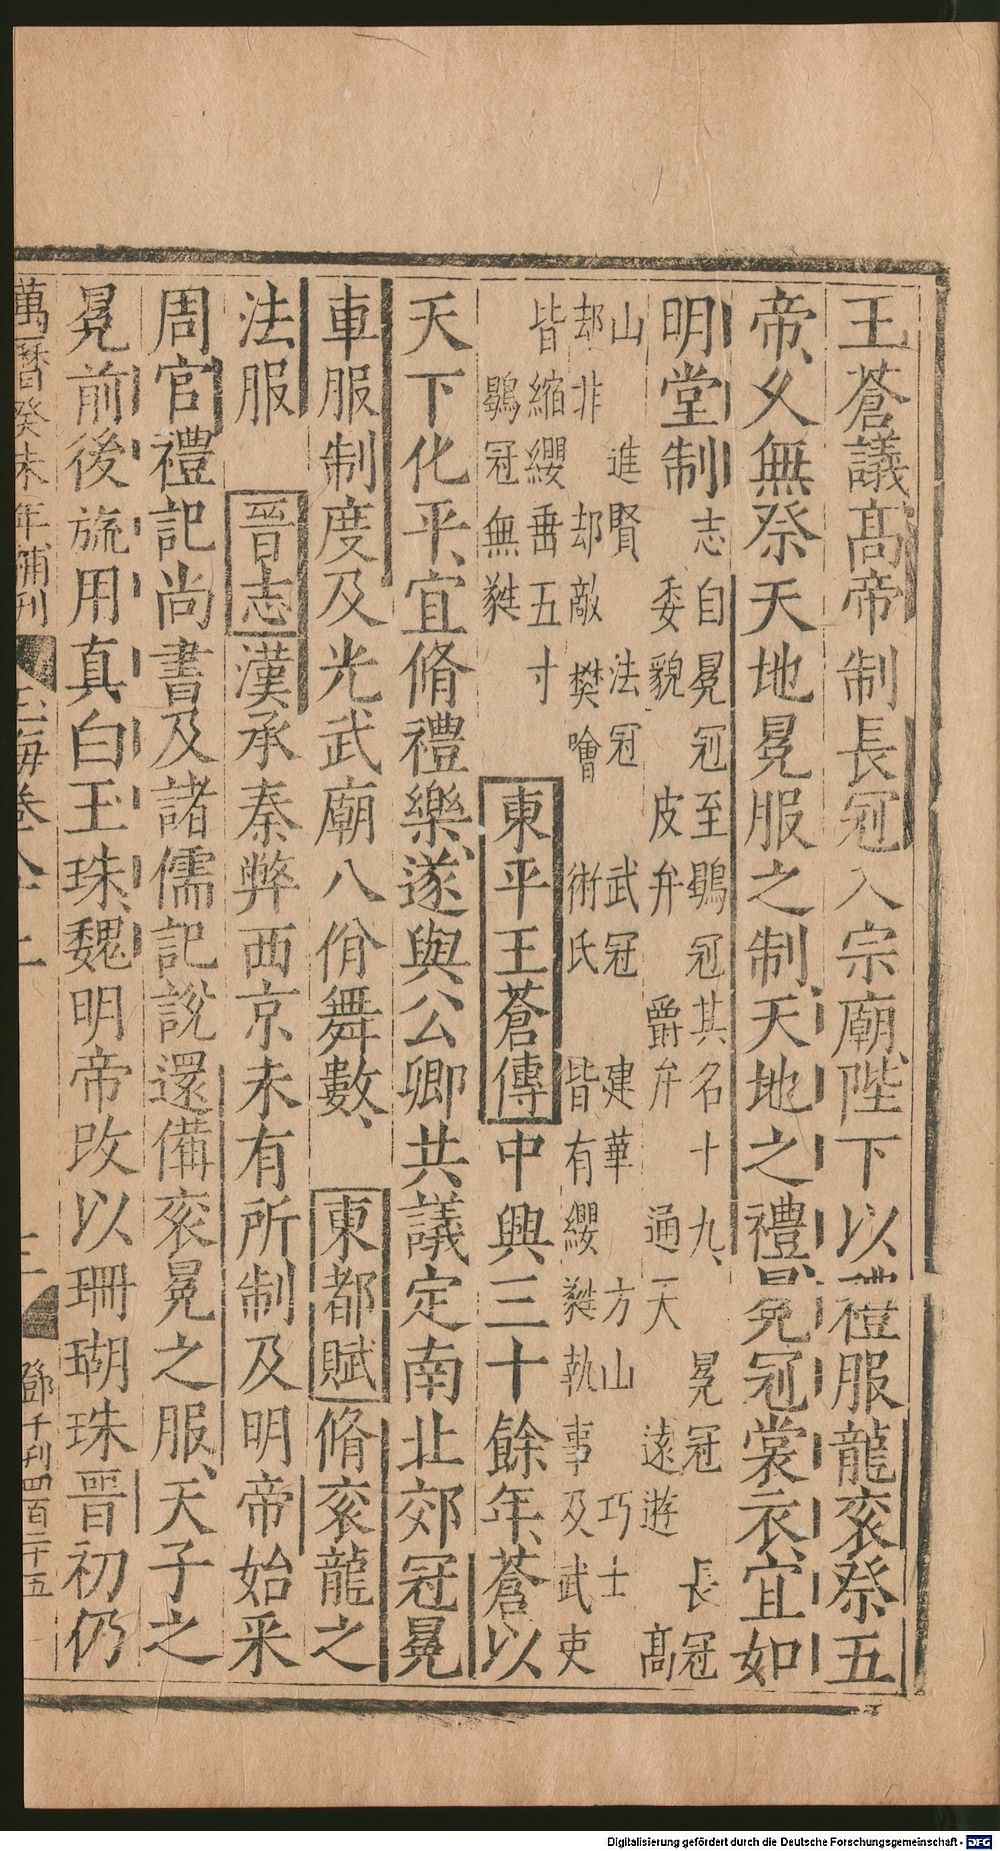 王蒼議高帝制長冠入宗廟、陛下以禮服龍衮祭五
帝、又無祭天地冕服之制、天地之禮冕冠裳衣、宜如
明堂制
志自冕冠至鶡冠其名十九、冕冠 長冠
委貌 皮弁 爵弁 通天 遠遊 高
山 進賢 法冠 武冠 建華 方山 巧士
却非 却敵 樊噲 術氏 皆有纓蕤執事及武吏
皆縮纓垂五寸
鶡冠無蕤
東平王蒼傳 中興三十餘年、蒼以
天下化平、宜脩禮樂、遂與公卿共議定南北郊冠冕
車服制度及光武廟八佾舞數、 東都賦 脩衮龍之
法服 晋志 漢承秦弊西京未有所制及明帝始采
周官禮記尚書及諸儒記說還備衮冕之服、天子之
冕前後旒用真白玉珠、魏明帝改以珊瑚珠晋初仍
萬曆癸未年補刊 玉海卷八十二 三 鄧千刊四百二十五
Digitalisierung gefördert durch die Deutsche Forschungsgemeinschaft - DFG